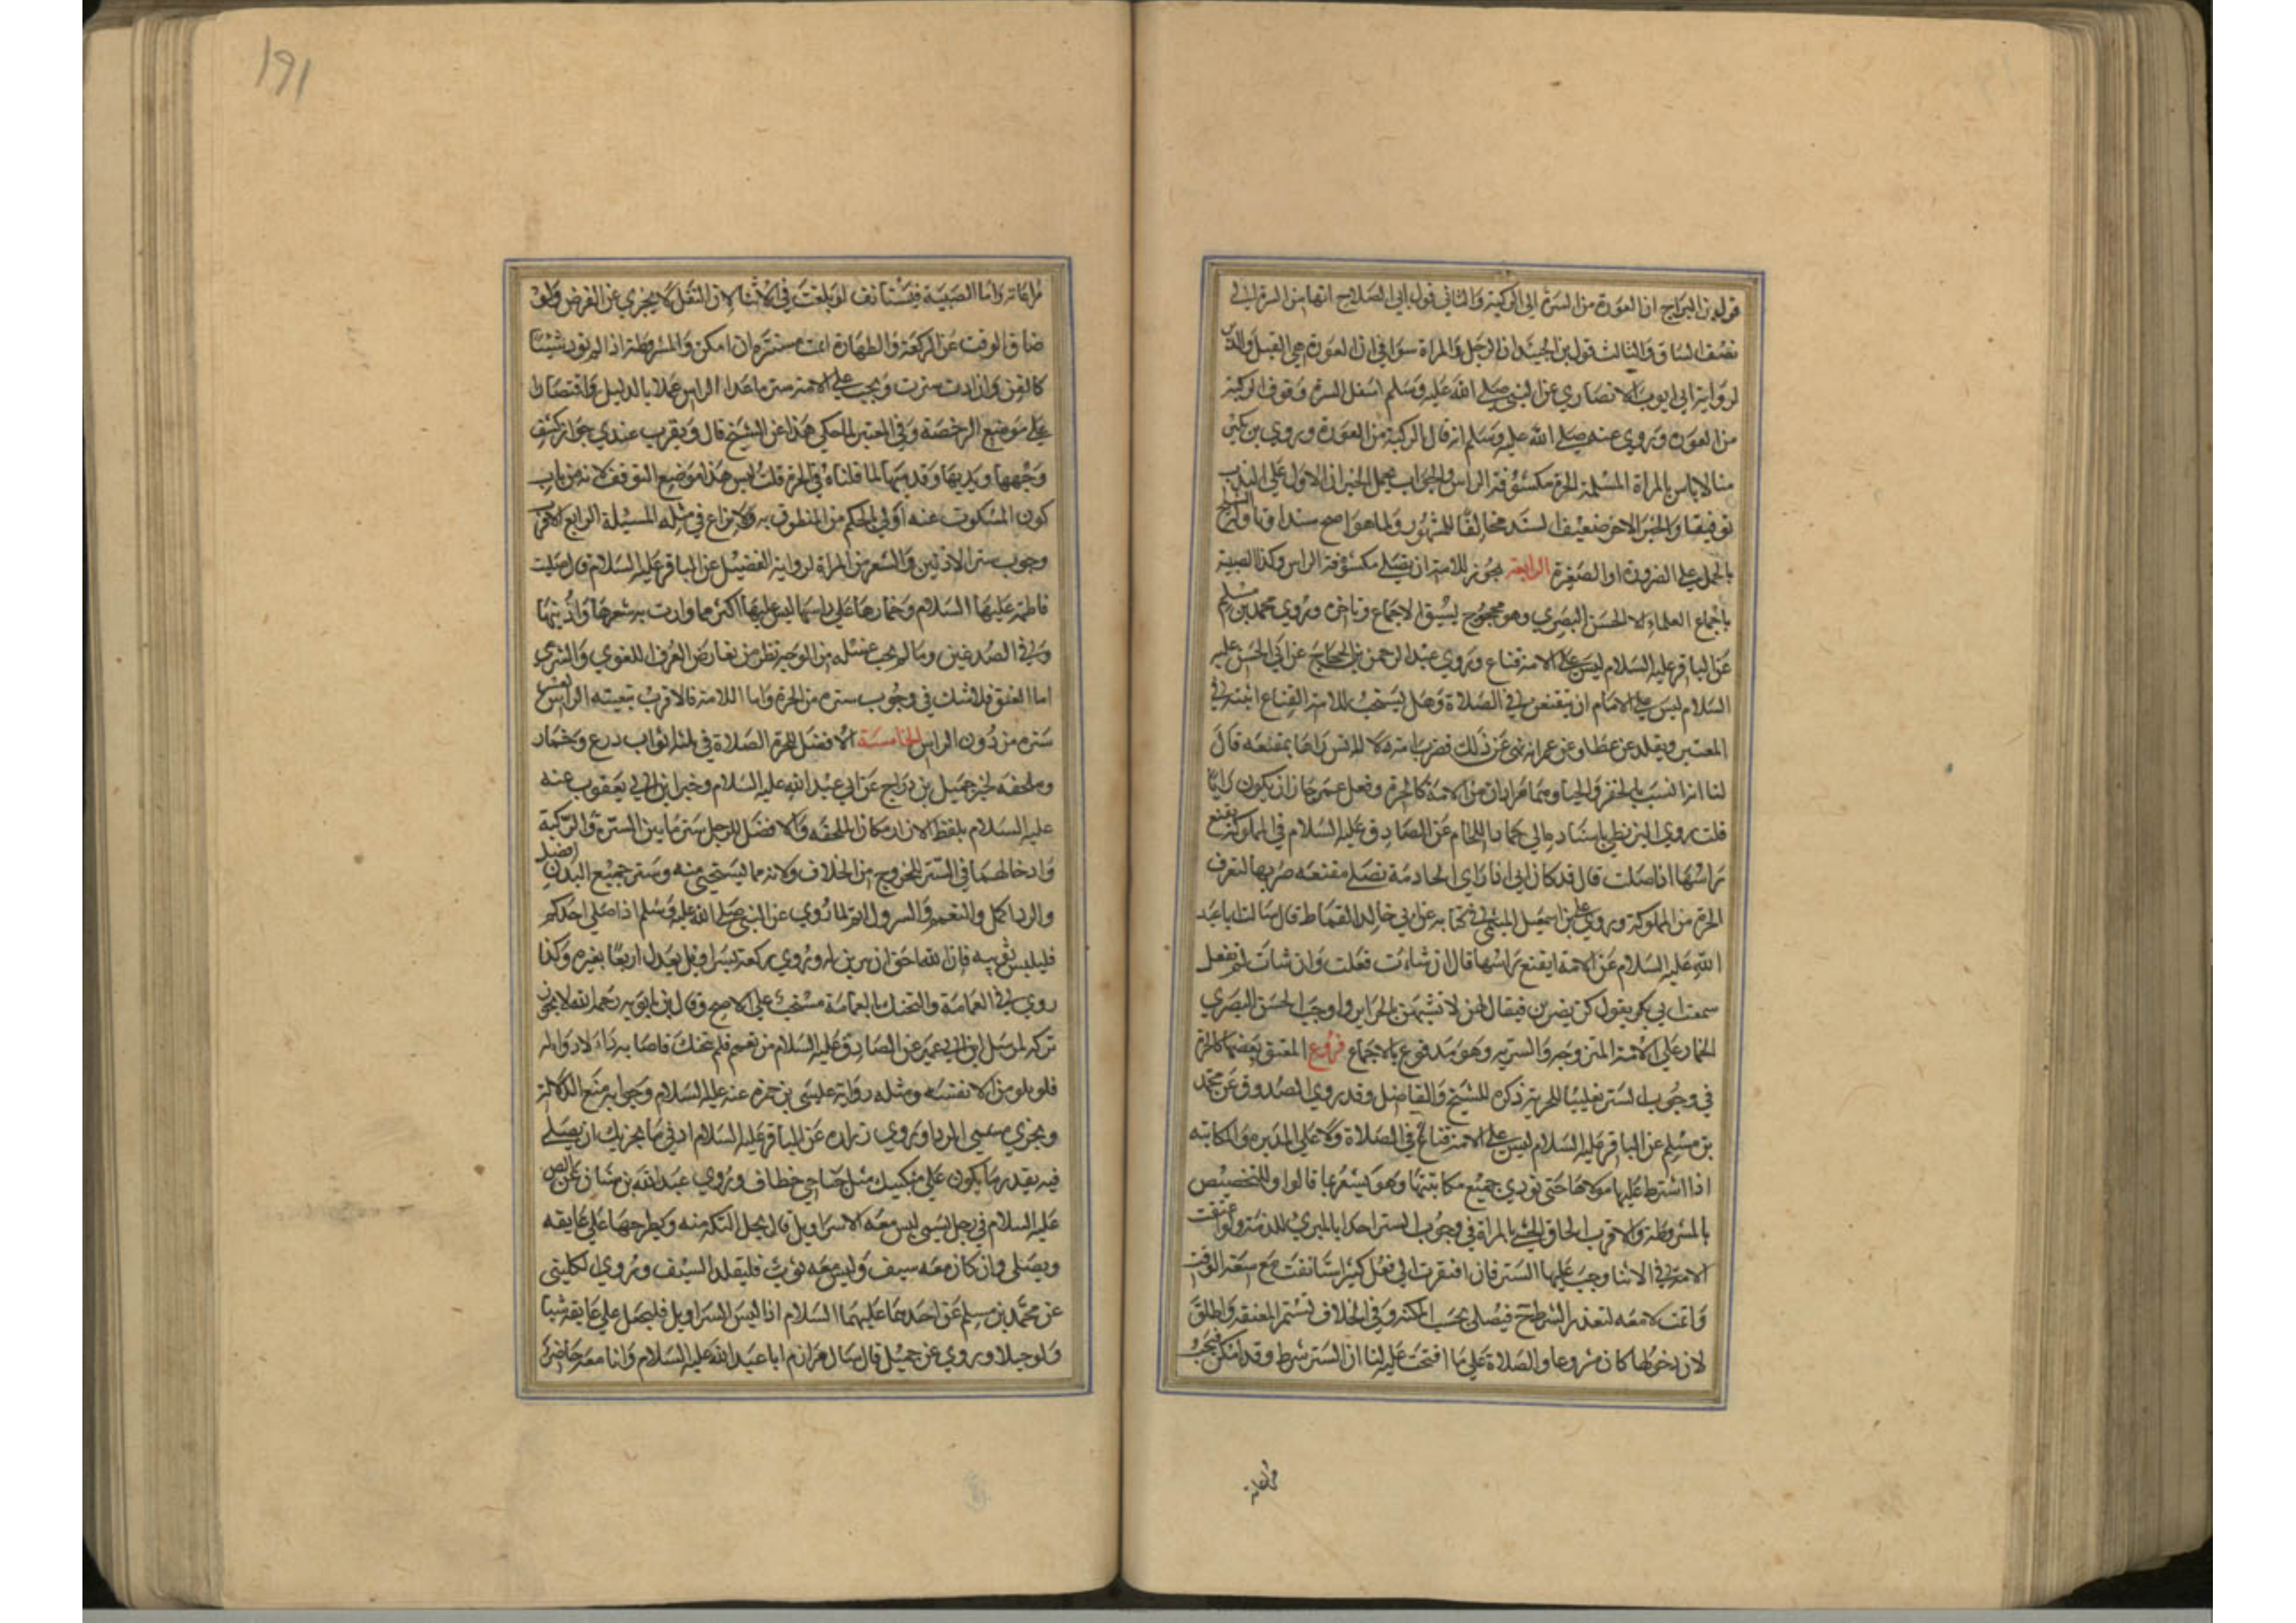 قول ابن البراج ان العورة من السرة الى الركبة والثاني قول ابي الصلاح انها من السرة الى
نصف الساق والثالث قول ابن الجنيد ان الرجل والمراة سوا في ان العورة هي القبل والدبر
لرواية ابي ايوب الانصاري عن النبي صلى الله عليه وسلم اسفل السرة وفوق الركبة
من العورة وروي عنه صلى الله عليه وسلم انه قال الركبة من العورة وروي بن بكير
منا لاباس بالمراة المسلمة الحرة مكشوفة الراس والجواب يحمل الخبران الاولان على الندب
توفيقا والخبر الاخر ضعيف السند مخالفا للمشهور ولما هو اصح سندا وتاوله الشيخ
بالحمل على الضرورة او الصغيرة الرابعة يجوز للامة ان تصلي مكشوفة الراس وكذا الصبية
باجماع العلماء الا الحسن البصري وهو محجوج بسبق الاجماع وتاخره وروي محمد بن مسلم
عن الباقر عليه السلام ليس على الامة قناع وروي عبد الرحمن بن الحجاج عن ابي الحسن عليه
السلام ليس على الاماء ان يتقنعن في الصلاة وهل يستحب للامة القناع اثبته في
المعتبر ونقله عن عطا وعن عمر انه نهى عن ذلك فضرب امة لال انس راها بمقنعة قال
لنا انه انسب بالخفر والحيا وهما مرادان من الامة كالحرة وفعل عمر جاز ان يكون رايا
قلت روي البزنطي باسناده الى حماد اللحام عن الصادق عليه السلام في المملوكة تقنع
راسها اذا صلت قال قد كان ابي اذا راى الخادمة تصلي مقنعة ضربها لتعرف
الحرة من المملوكة وروي علي بن اسمعيل الميثمي في كتابه عن ابي خالد القماط قال سالت ابا عبد
الله عليه السلام عن الامة ايقنع راسها قال ان شاءت فعلت وان شات لم تفعل
سمعت ابي يقول كن يضربن فيقال لهن لا تشبهن بالحراير واوجب الحسن البصري
الخمار على الامة المتزوجة والسرية وهو مدفوع بالاجماع فروع المعتق بعضها كالحرة
في وجوب الستر تغليبا للحرية ذكره الشيخ والفاضل وقد روي الصدوق عن محمد
بن مسلم عن الباقر عليه السلام ليس على الامة قناع في الصلاة ولا على المدبرة والمكاتبة
اذا اشترط عليها مولاها حتى تودي جميع مكاتبتها وهو يشعر بما قالوا وللتخصيص
بالمشروطة والاقرب الحاق الخنثى بالمراة في وجوب الستر اخذا بالمبرئ للذمة ولو اعتقت
الامة في الاثنا وجب عليها الستر فان افتقرت الى فعل كثير استانفت مع سعة الوقت
واتمت لا معه لتعذر الشرط ح فيصلي بحسب المكنة وفي الخلاف تستمر المعتقة واطلق
لان دخولها كان مشروعا والصلاة على ما افتتحت عليه لنا ان الستر شرط وقد امكن فتجب
مراعاته
مراعاته واما الصبية فتستانف لو بلغت في الاثنا لان النفل لا يجزي عن الفرض ولو
ضاق الوقت عن الركعة والطهارة اتمت مستترة ان امكن والمشروطة اذا لم تود شيئا
كالقن وان ادت سترت ويجب على الامة ستر ما عدا الراس عملا بالدليل واقتصارا
على موضع الرخصة وفي المعتبر لما حكى هذا عن الشيخ قال ويقرب عندي جواز كشف
وجهها ويديها وقدميها لما قلناه في الحرة قلت ليس هذا موضع التوقف لانه من باب
كون المسكوت عنه اولى بالحكم من المنطوق به ولا نزاع في مثله المسيلة الرابع الاقرب
وجوب ستر الاذنين والشعر من المراة لرواية الفضيل عن الباقر عليه السلام قال صلت
فاطمة عليها السلام وخمارها على راسها ليس عليها اكثر مما وارت به شعرها واذنيها
وفي الصدغين وما لم يجب غسله من الوجه نظر من تعارض العرف اللغوي والشرعي
اما العنق فلا شك في وجوب ستره من الحرة واما الامة فالاقرب تبعيته الراس لعسر
ستره من دون الراس الخامسة الافضل للحرة الصلاة في ثلثه اثواب درع وخمار
وملحفة لخبر جميل بن دراج عن ابي عبد الله عليه السلام وخبر ابن ابي يعفور عنه
عليه السلام بلفظ الازار مكان الملحفة والافضل للرجل ستر ما بين السرة والركبة
وادخالهما في الستر للخروج من الخلاف ولانه مما يستحيى منه وستر جميع البدن افضل
والردا كل والتعمم والسرول اتم لما روي عن النبي صلى الله عليه وسلم اذا صلى احدكم
فليلبس ثوبيه فان الله احق ان يزين له وروي ركعة بسراويل تعدل اربعا بغيره وكذا
روي في العمامة والتحنك بالعمامة مستحب على الاصح وقال ابن بابويه رحمه الله لا يجوز
تركه لمرسل ابن ابي عمير عن الصادق عليه السلام من تعمم فلم يتحنك فاصابه داء لا دوا له
فلا يلومن الا نفسه ومثله رواية عيسى بن حمزة عنه عليه السلام وجوابه منع الدلالة
ويجزي مسمى الردا وروي زرارة عن الباقر عليه السلام ادنى ما يجزيك ان تصلي
فيه بقدر ما يكون على منكبيك مثل جناحي خطاف وروي عبد الله بن سنان عن الص
عليه السلام في رجل ليس معه الا سراويل قال يحل التكة منه ويطرحها على عاتقه
ويصلى وان كان معه سيف وليس معه ثوب فليتقلد السيف وروي الكليني
عن محمد بن مسلم عن احدهما عليهما السلام اذا لبس السراويل فليجعل على عاتقه شيا
ولو حبلا وروي عن جميل قال سال مرازم ابا عبد الله عليه السلام وانا معه حاضر
191